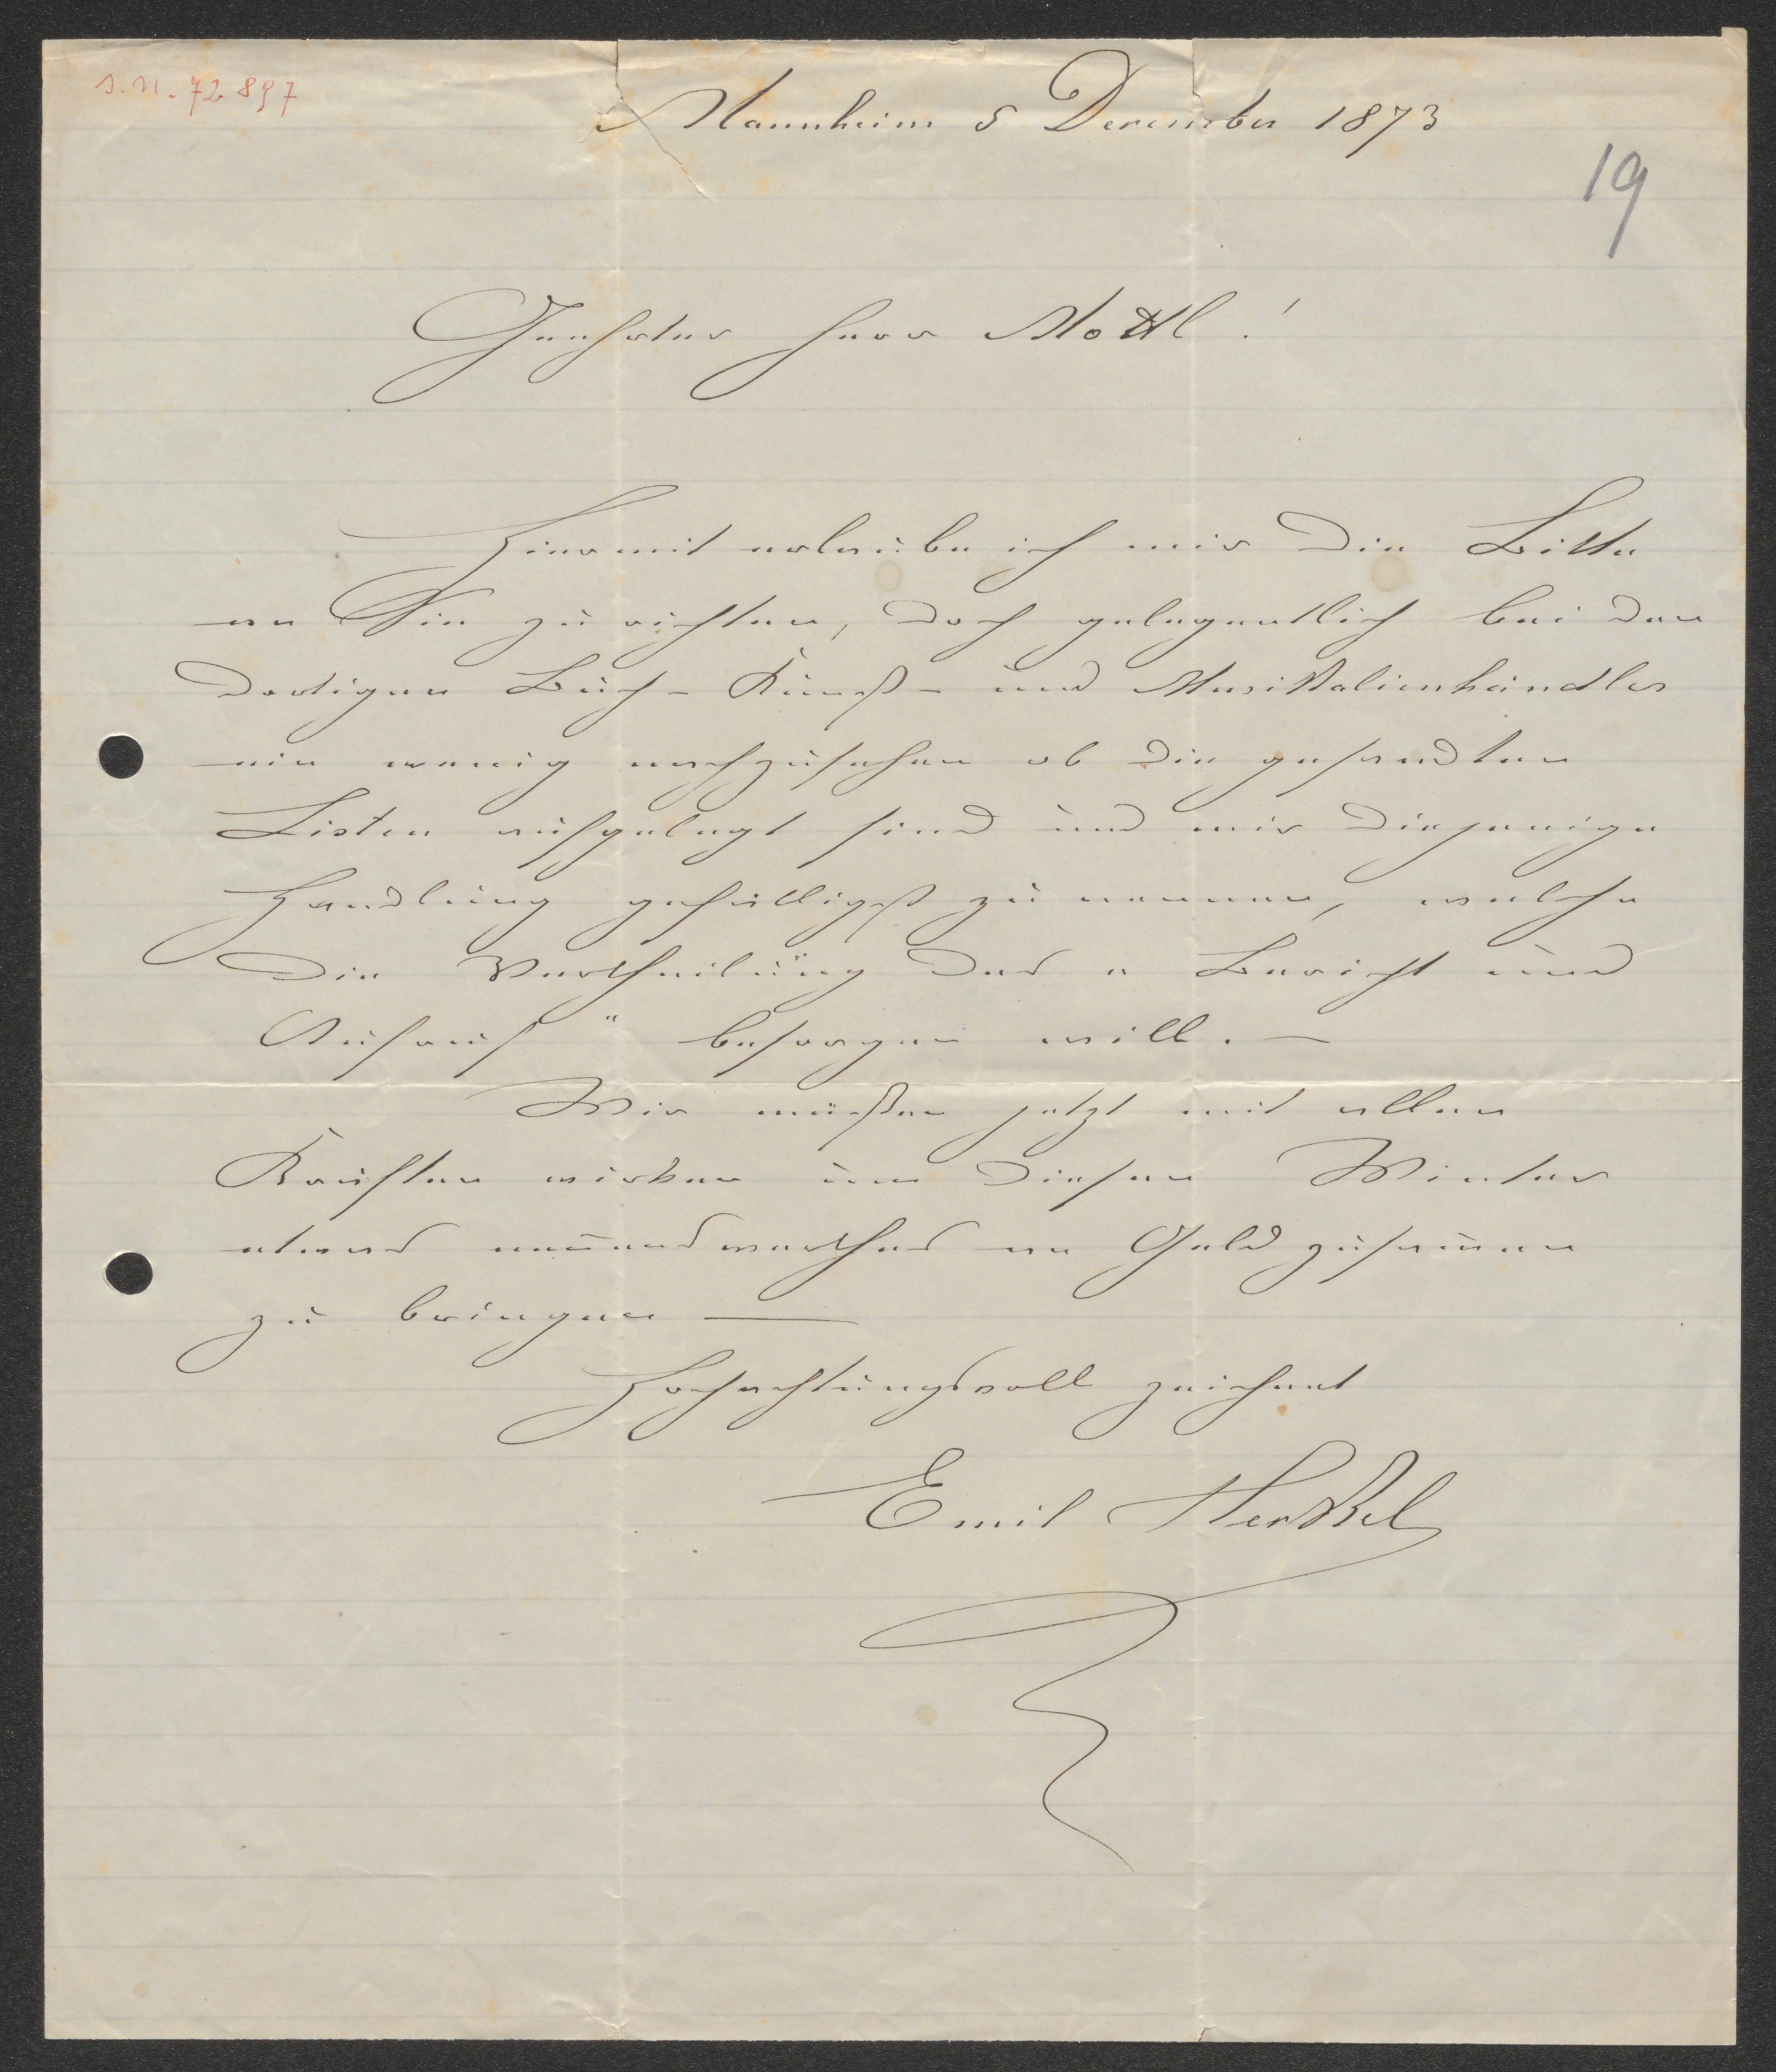 s. n. 72.897
Mannheim 5 December 1873
19
Geehrter Herr Mottl!
Hiermit erlaube ich mir die Bitte
an Sie zu richten, doch gelegentlich bei den
dortigen Buch- Kunst- und Musikalienhändler
ein wenig nachzusehen ob die gesandten
Listen aufgelegt sind und mir diejenige
Handlung gefälligst zu nennen, welche
die Vertheilung des "Bericht und
Aufruf" besorgen will. —
Wir müßen jetzt mit allen
Kräften wirken um diesen Winter
etwas nennenswerthes an Geld zusam̅en
zu bringen —
Hochachtungsvoll zeichnet
Emil Heckel